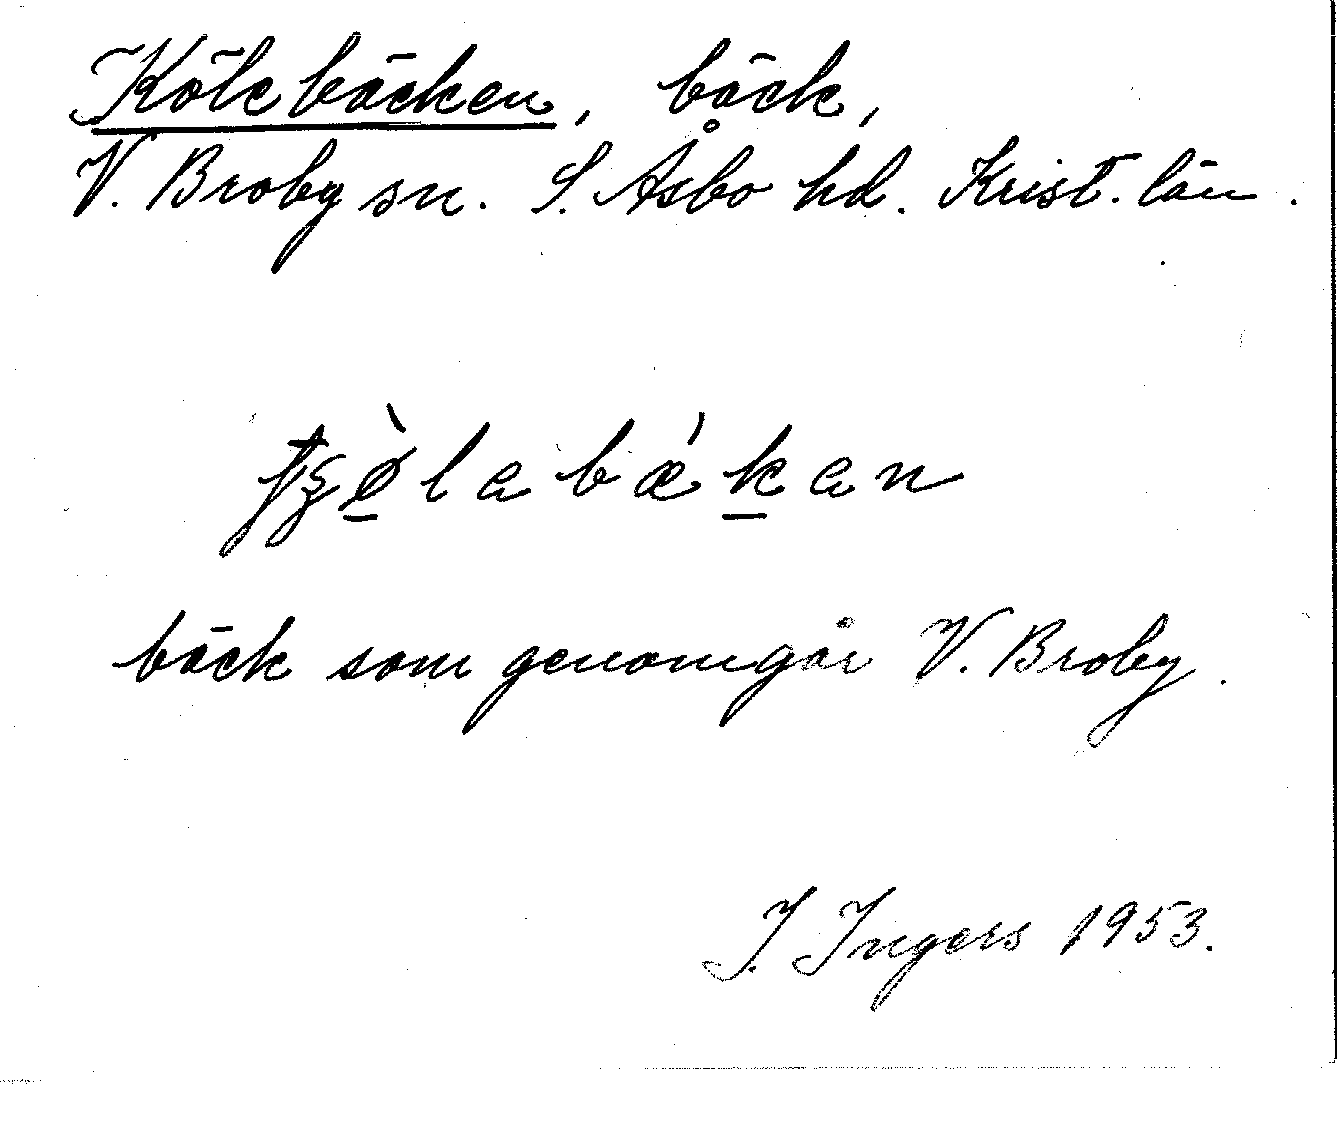 Kölebäcken, bäck,
V. Broby sn. S. Åsbo hd. Krist. län.
bäck som genomgår V. Broby.
I. Ingers 1953.